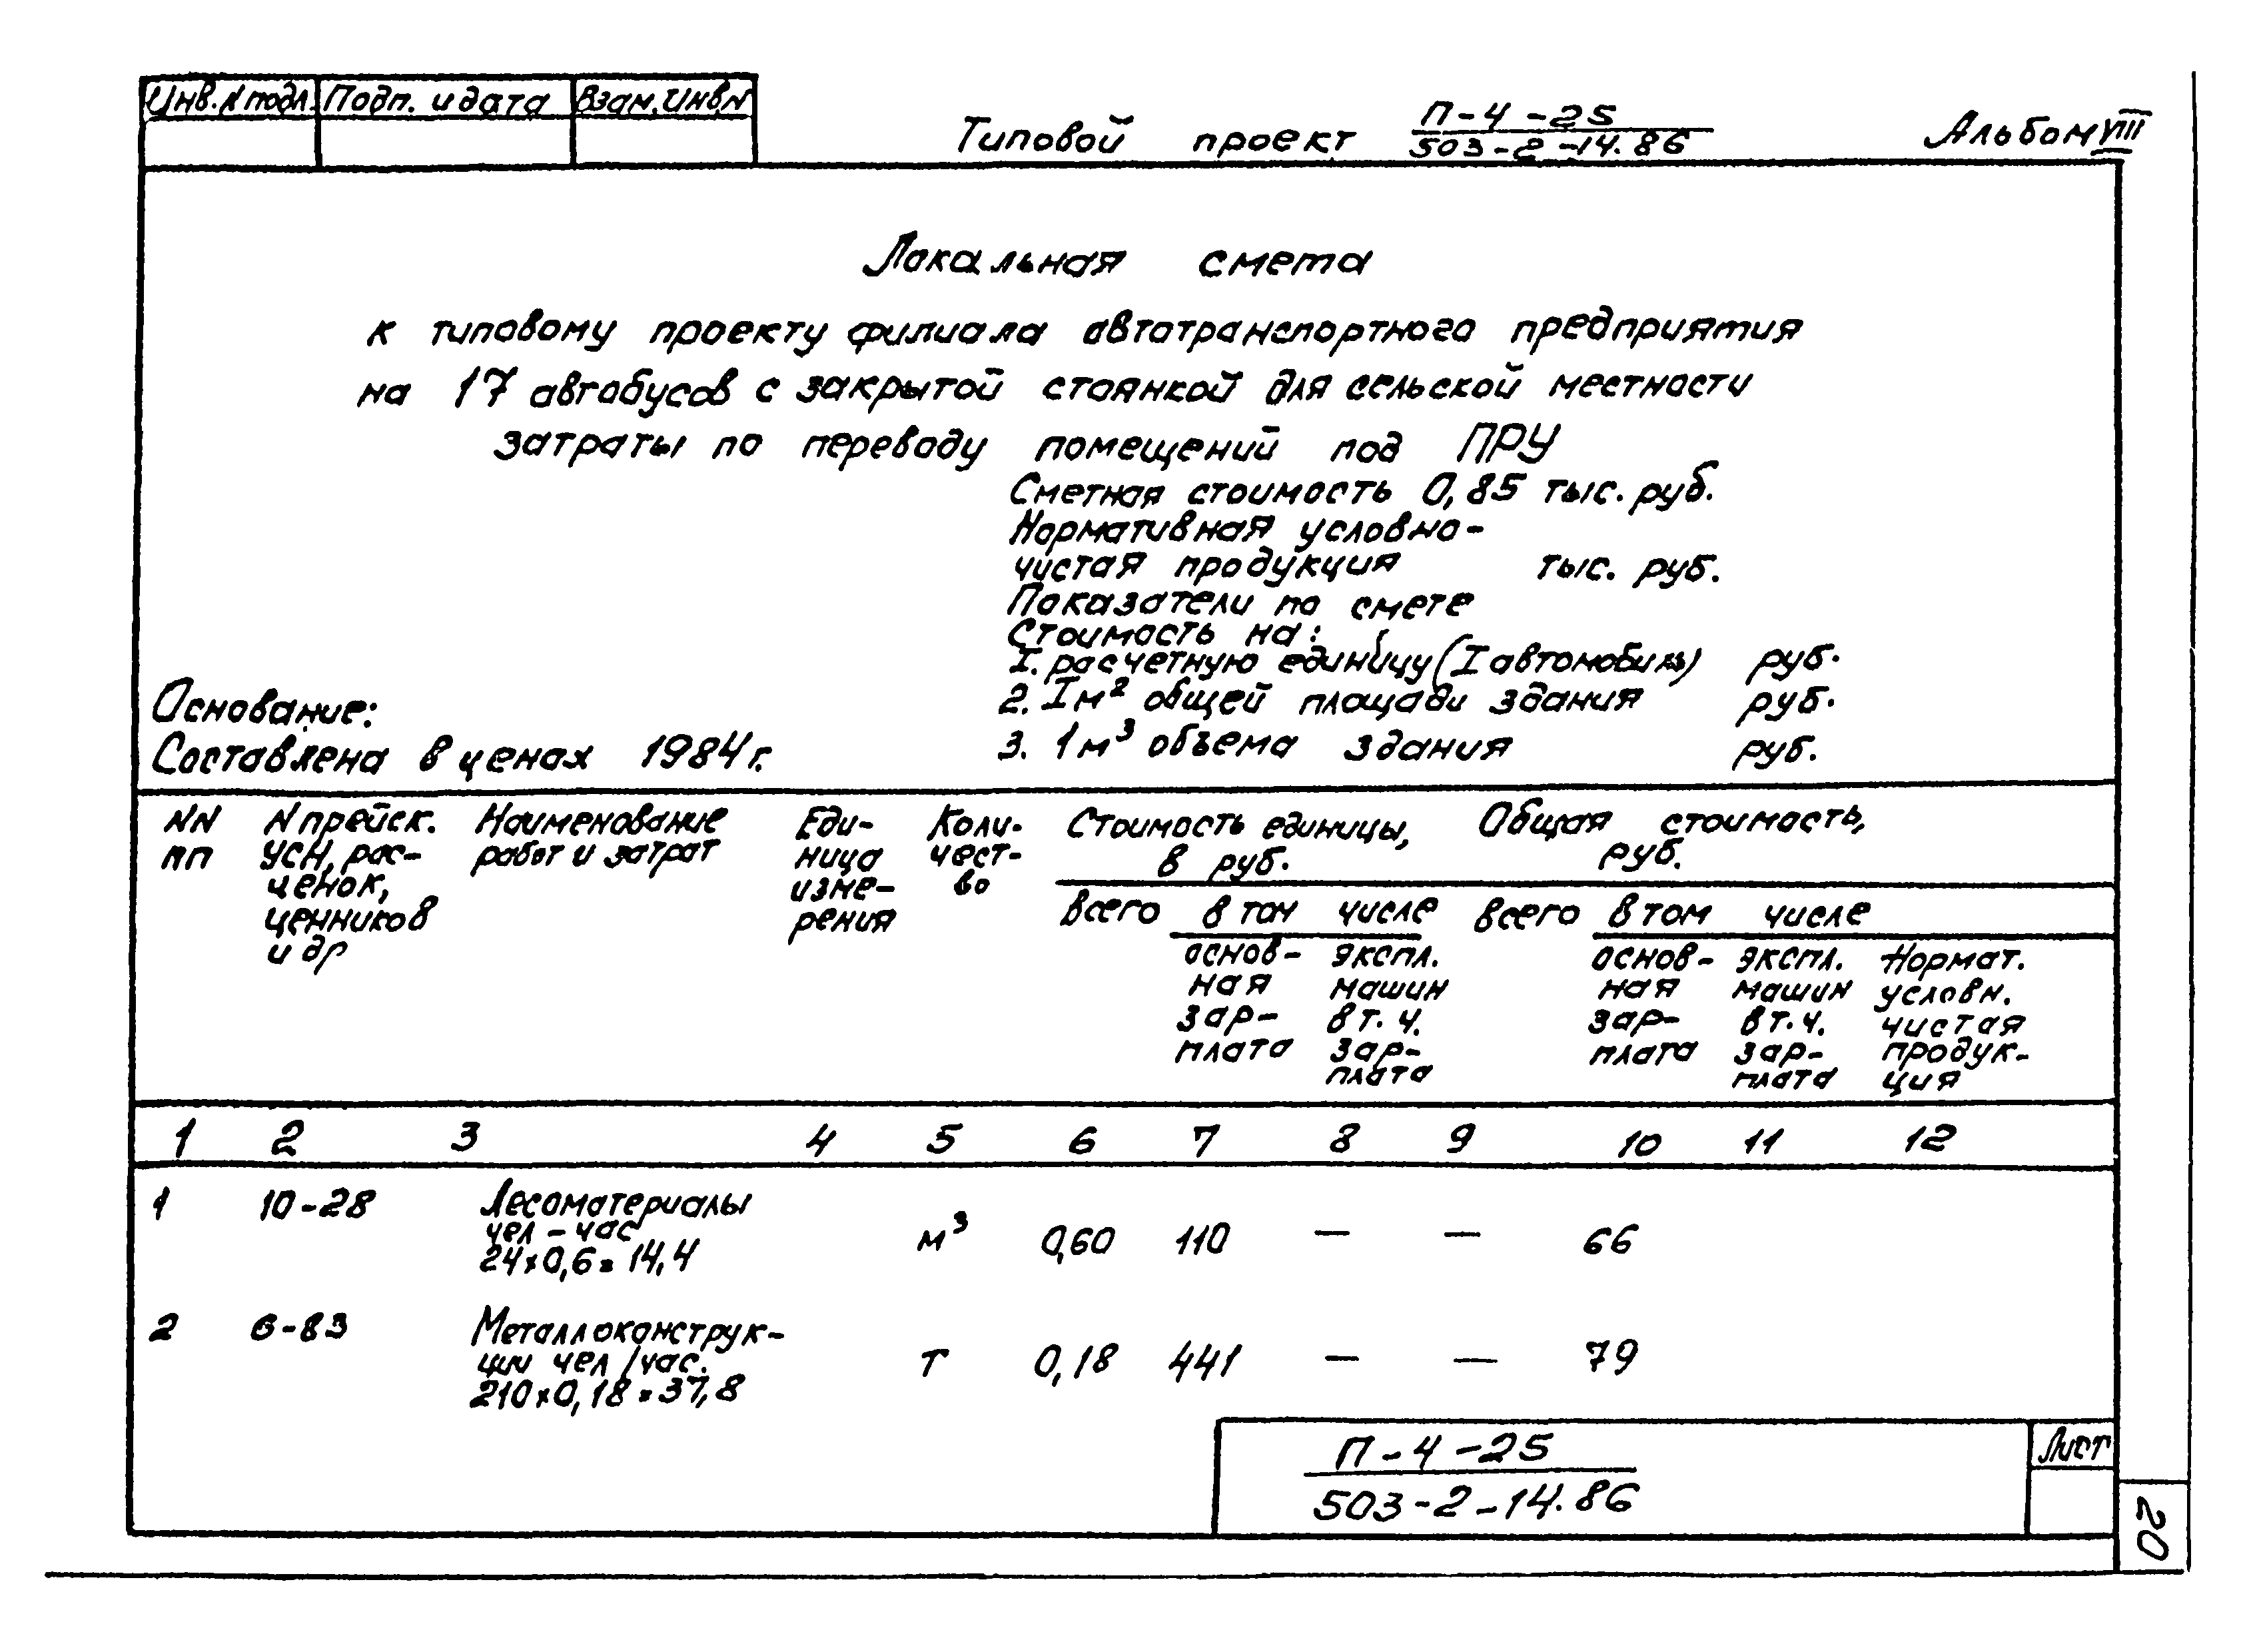 Инв. N подл. Подп. и дата Взам. инв. N
Типовой проект П-4-25
503-2-14.86
Альбом VIII
Локальная смета
к типовому проекту филиала автотранспортного предприятия
на 17 автобусов с закрытой стоянкой для сельской местности
затраты по переводу помещений под ПРУ
Сметная стоимость 0,85 тыс. руб.
Нормативная условно-
чистая продукция тыс. руб.
Показатели по смете
Стоимость на:
I. расчетную единицу (I автомобиль) руб.
2. Iм² общей площади здания руб.
3. 1м³ объема здания руб.
Основание:
Составлена в ценах 1984 г.
NN
пп
N прейск.
УСН, рас-
ценок,
ценников
и др
Наименование
работ и затрат
Еди-
ница
изме-
рения
Коли-
чест-
во
Стоимость единицы,
в руб.
Общая стоимость,
руб.
всего в том числе
основ-
ная
зар-
плата
экспл.
машин
в т.ч.
зар-
плата
всего в том числе
основ-
ная
зар-
плата
экспл.
машин
в т.ч.
зар-
плата
Нормат.
условн.
чистая
продук-
ция
1 2 3 4 5 6 7 8 9 10 11 12
1 10-28 Лесоматериалы
чел-час
24×0,6=14,4
м³ 0,60 110 — — 66
2 6-83 Металлоконструк-
ции чел/час.
210×0,18=37,8
т 0,18 441 — — 79
П-4-25
503-2-14.86
Лист
20